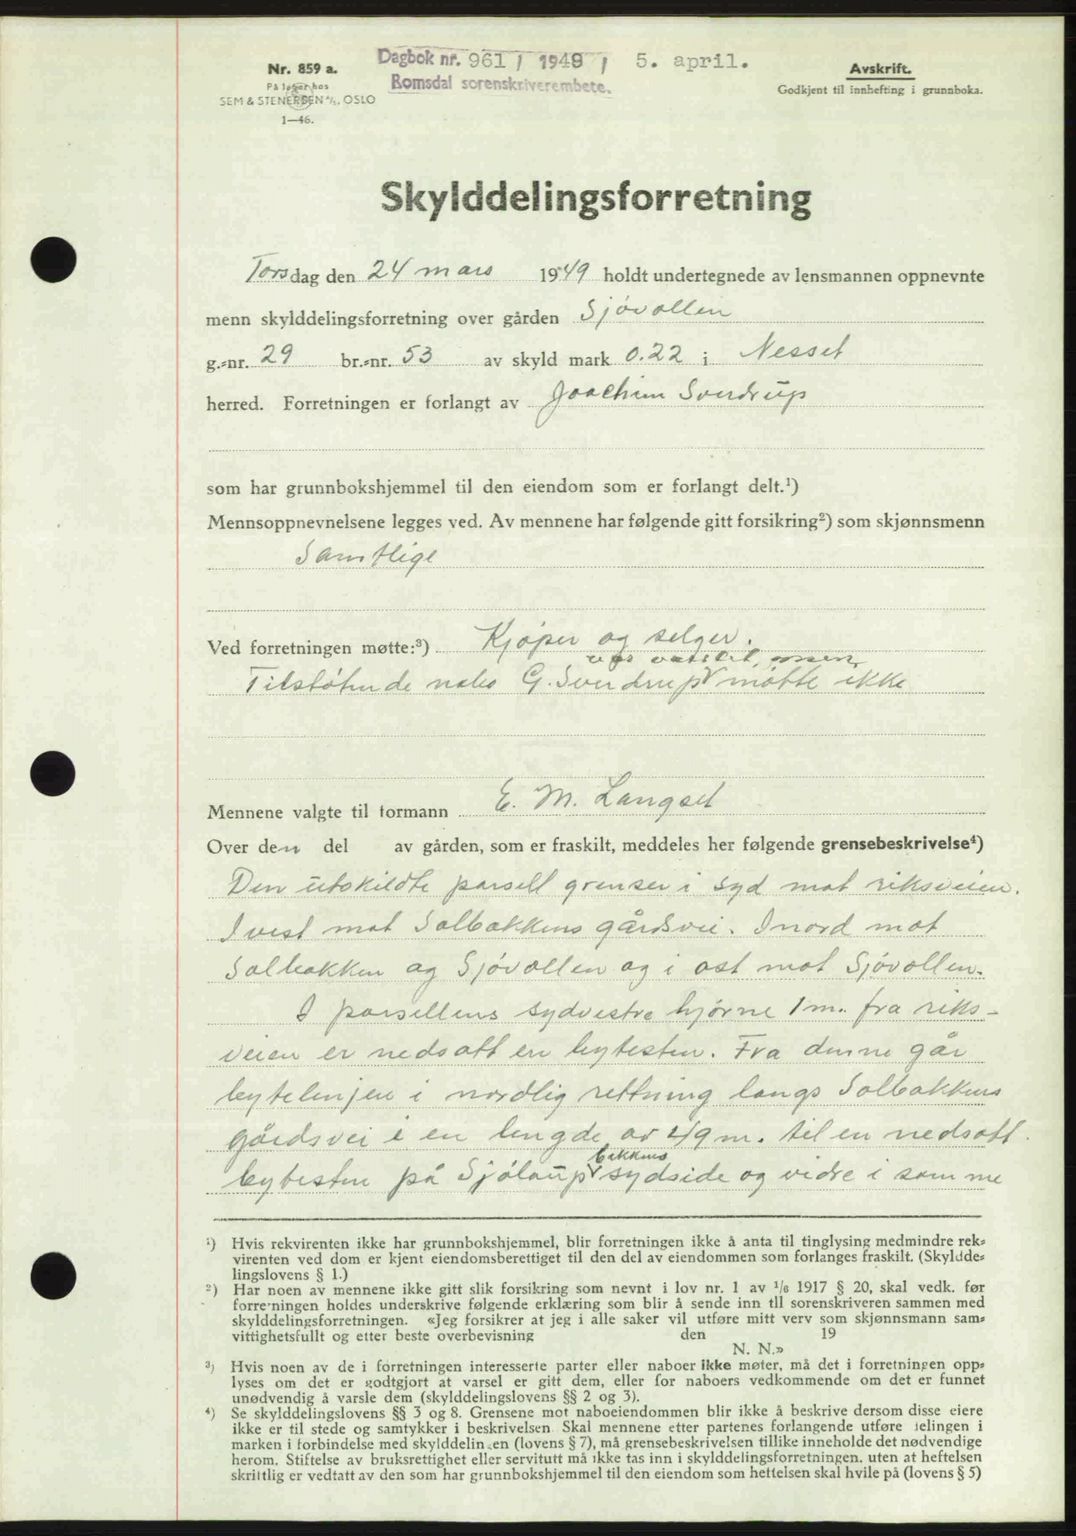 Dagbok nr. 961 / 1949 / 5. april.
Romsdal sorenskriverembete.
Nr. 859 a.
På lager hos
SEM & STENERSEN A/S, OSLO
1—46.
Avskrift.
Godkjent til innhefting i grunnboka.
Skylddelingsforretning
Torsdag den 24 mars 1949 holdt undertegnede av lensmannen oppnevnte
menn skylddelingsforretning over gården Sjøvollen
g.-nr. 29 br.-nr. 53 av skyld mark 0.22 i Nesset
herred. Forretningen er forlangt av Joachim Sverdrup
som har grunnbokshjemmel til den eiendom som er forlangt delt.¹)
Mennsoppnevnelsene legges ved. Av mennene har følgende gitt forsikring²) som skjønnsmenn
Samtlige
Ved forretningen møtte:³) Kjøper og selger.
var varslet, men
Tilstøtende nabo G. Sverdrup møtte ikke
Mennene valgte til formann E. M. Langset
Over den del av gården, som er fraskilt, meddeles her følgende grensebeskrivelse⁴)
Den utskildte parsell grenser i syd mot riksveien.
I vest mot Solbakkens gårdsvei. I nord mot
Solbakken og Sjøvollen og i øst mot Sjøvollen.
I parsellens sydvestre hjørne 1 m. fra riks-
veien er nedsatt en bytesten. Fra denne går
bytelinjen i nordlig rettning langs Solbakkens
gårdsvei i en lengde av 49 m. til en nedsatt
bekkens
bytesten på Sjølaup sydside og vidre i samme
¹) Hvis rekvirenten ikke har grunnbokshjemmel, blir forretningen ikke å anta til tinglysing medmindre rek-
virenten ved dom er kjent eiendomsberettiget til den del av eiendommen som forlanges fraskilt. (Skyldde-
lingslovens § 1.)
²) Har noen av mennene ikke gitt slik forsikring som nevnt i lov nr. 1 av 1/6 1917 § 20, skal vedk. før
forretningen holdes underskrive følgende erklæring som blir å sende inn til sorenskriveren sammen med
skylddelingsforretningen. «Jeg forsikrer at jeg i alle saker vil utføre mitt verv som skjønnsmann sam-
vittighetsfullt og etter beste overbevisning den 19
N. N.»
³) Hvis noen av de i forretningen interesserte parter eller naboer ikke møter, må det i forretningen opp-
lyses om det er godtgjort at varsel er gitt dem, eller for naboers vedkommende om det er funnet
unødvendig å varsle dem (skylddelingslovens §§ 2 og 3).
⁴) Se skylddelingslovens §§ 3 og 8. Grensene mot naboeiendommen blir ikke å beskrive dersom disse eiere
ikke er til stede og samtykker i beskrivelsen. Skal mennene etter partenes forlangende utføre delingen i
marken i forbindelse med skylddelingen (lovens § 7), må grensebeskrivelsen tillike inneholde det nødvendige
herom. Stiftelse av bruksrettighet eller servitutt må ikke tas inn i skylddelingsforretningen, uten at heftelsen
skriftlig er vedtatt av den som har grunnbokshjemmel til den eiendom som heftelsen skal hvile på (lovens § 5)